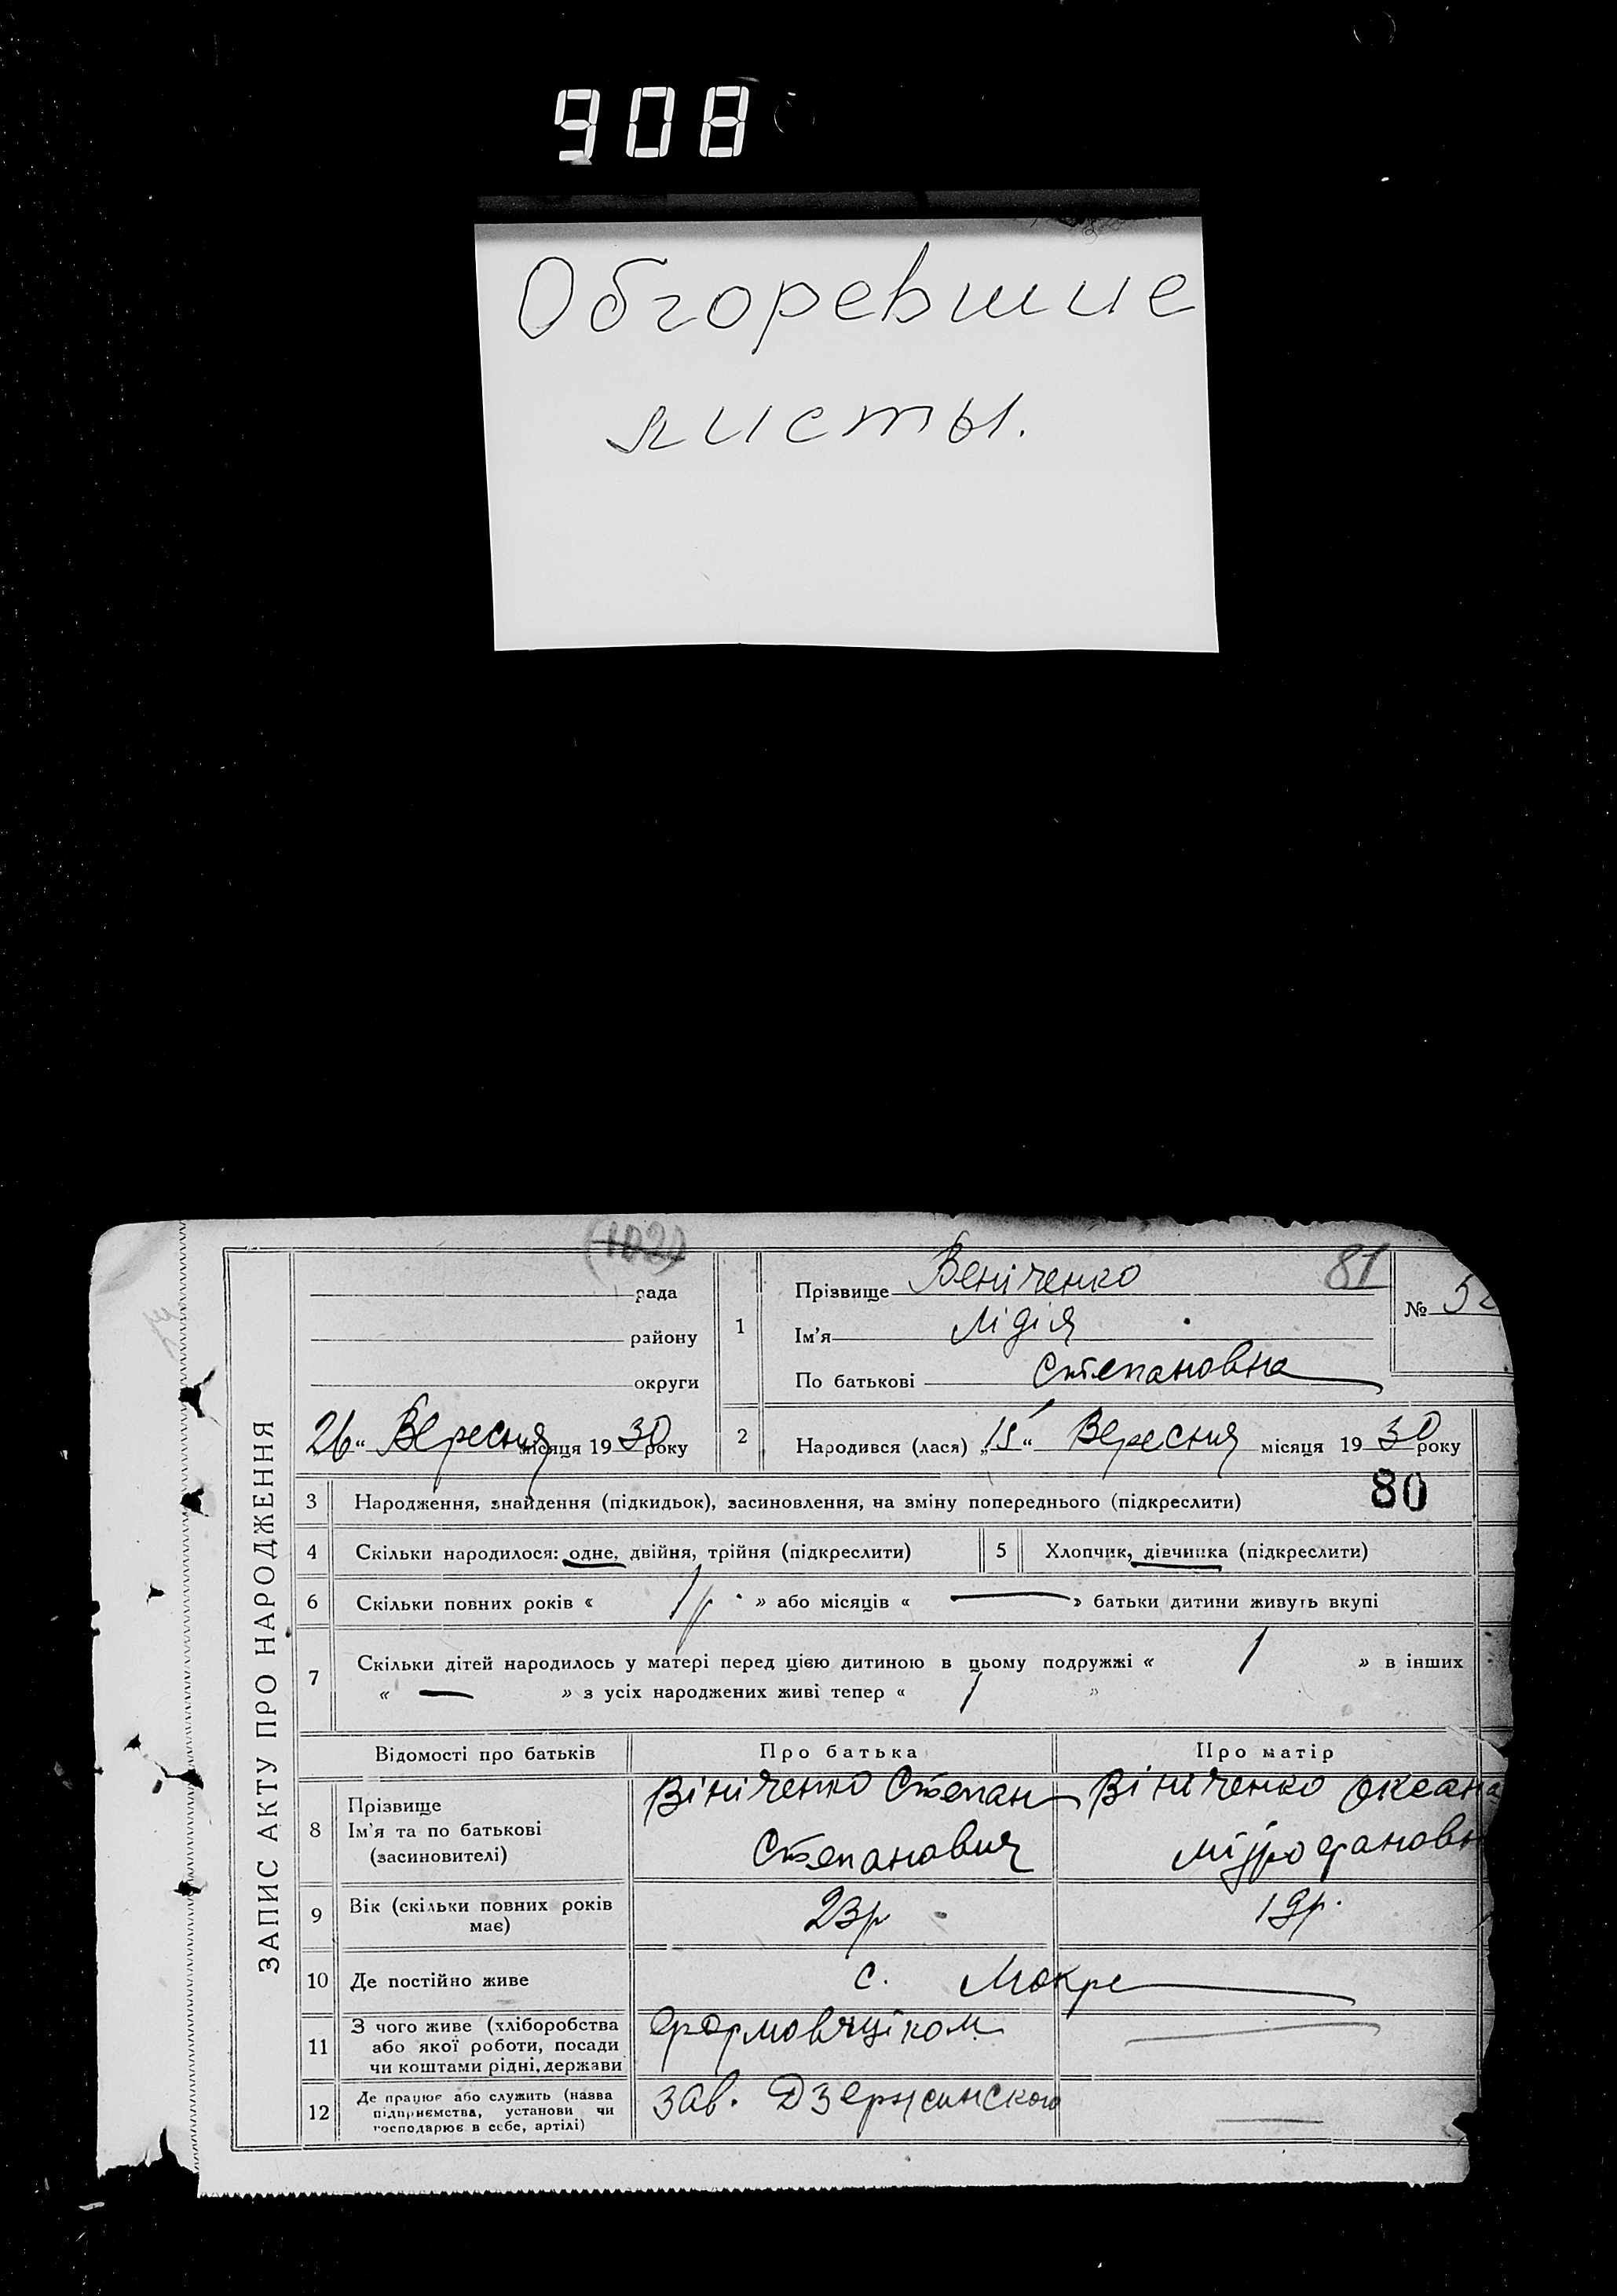 908
Обгоревшие
листы.
(102)
рада
району
округи
26 „ Вересня місяця 1930 року
1
Прізвище Веніченко
81
Ім'я Лідія
По батькові Степановна
№ 52
2
Народився (лася) „15“ Вересня місяця 1930 року
80
ЗАПИС АКТУ ПРО НАРОДЖЕННЯ
3 Народження, знайдення (підкидьок), засиновлення, на зміну попереднього (підкреслити)
4 Скільки народилося: одне, двійня, трійня (підкреслити) 5 Хлопчик, дівчинка (підкреслити)
6 Скільки повних років « 1р. » або місяців « — » батьки дитини живуть вкупі
7 Скільки дітей народилось у матері перед цією дитиною в цьому подружжі « 1 » в інших
« — » з усіх народжених живі тепер « 1 »
Відомості про батьків Про батька Про матір
8 Прізвище
Ім'я та по батькові
(засиновителі)
Вініченко Степан
Степанович
Вініченко Оксана
Мітрофановн
9 Вік (скільки повних років
має)
23р
19р.
10 Де постійно живе с. Мокре
11 З чого живе (хліборобства
або якої роботи, посади
чи коштами рідні, держави
формовщіком
12 Де працює або служить (назва
підприємства, установи чи
господарює в себе, артілі)
зав. Дзержинского